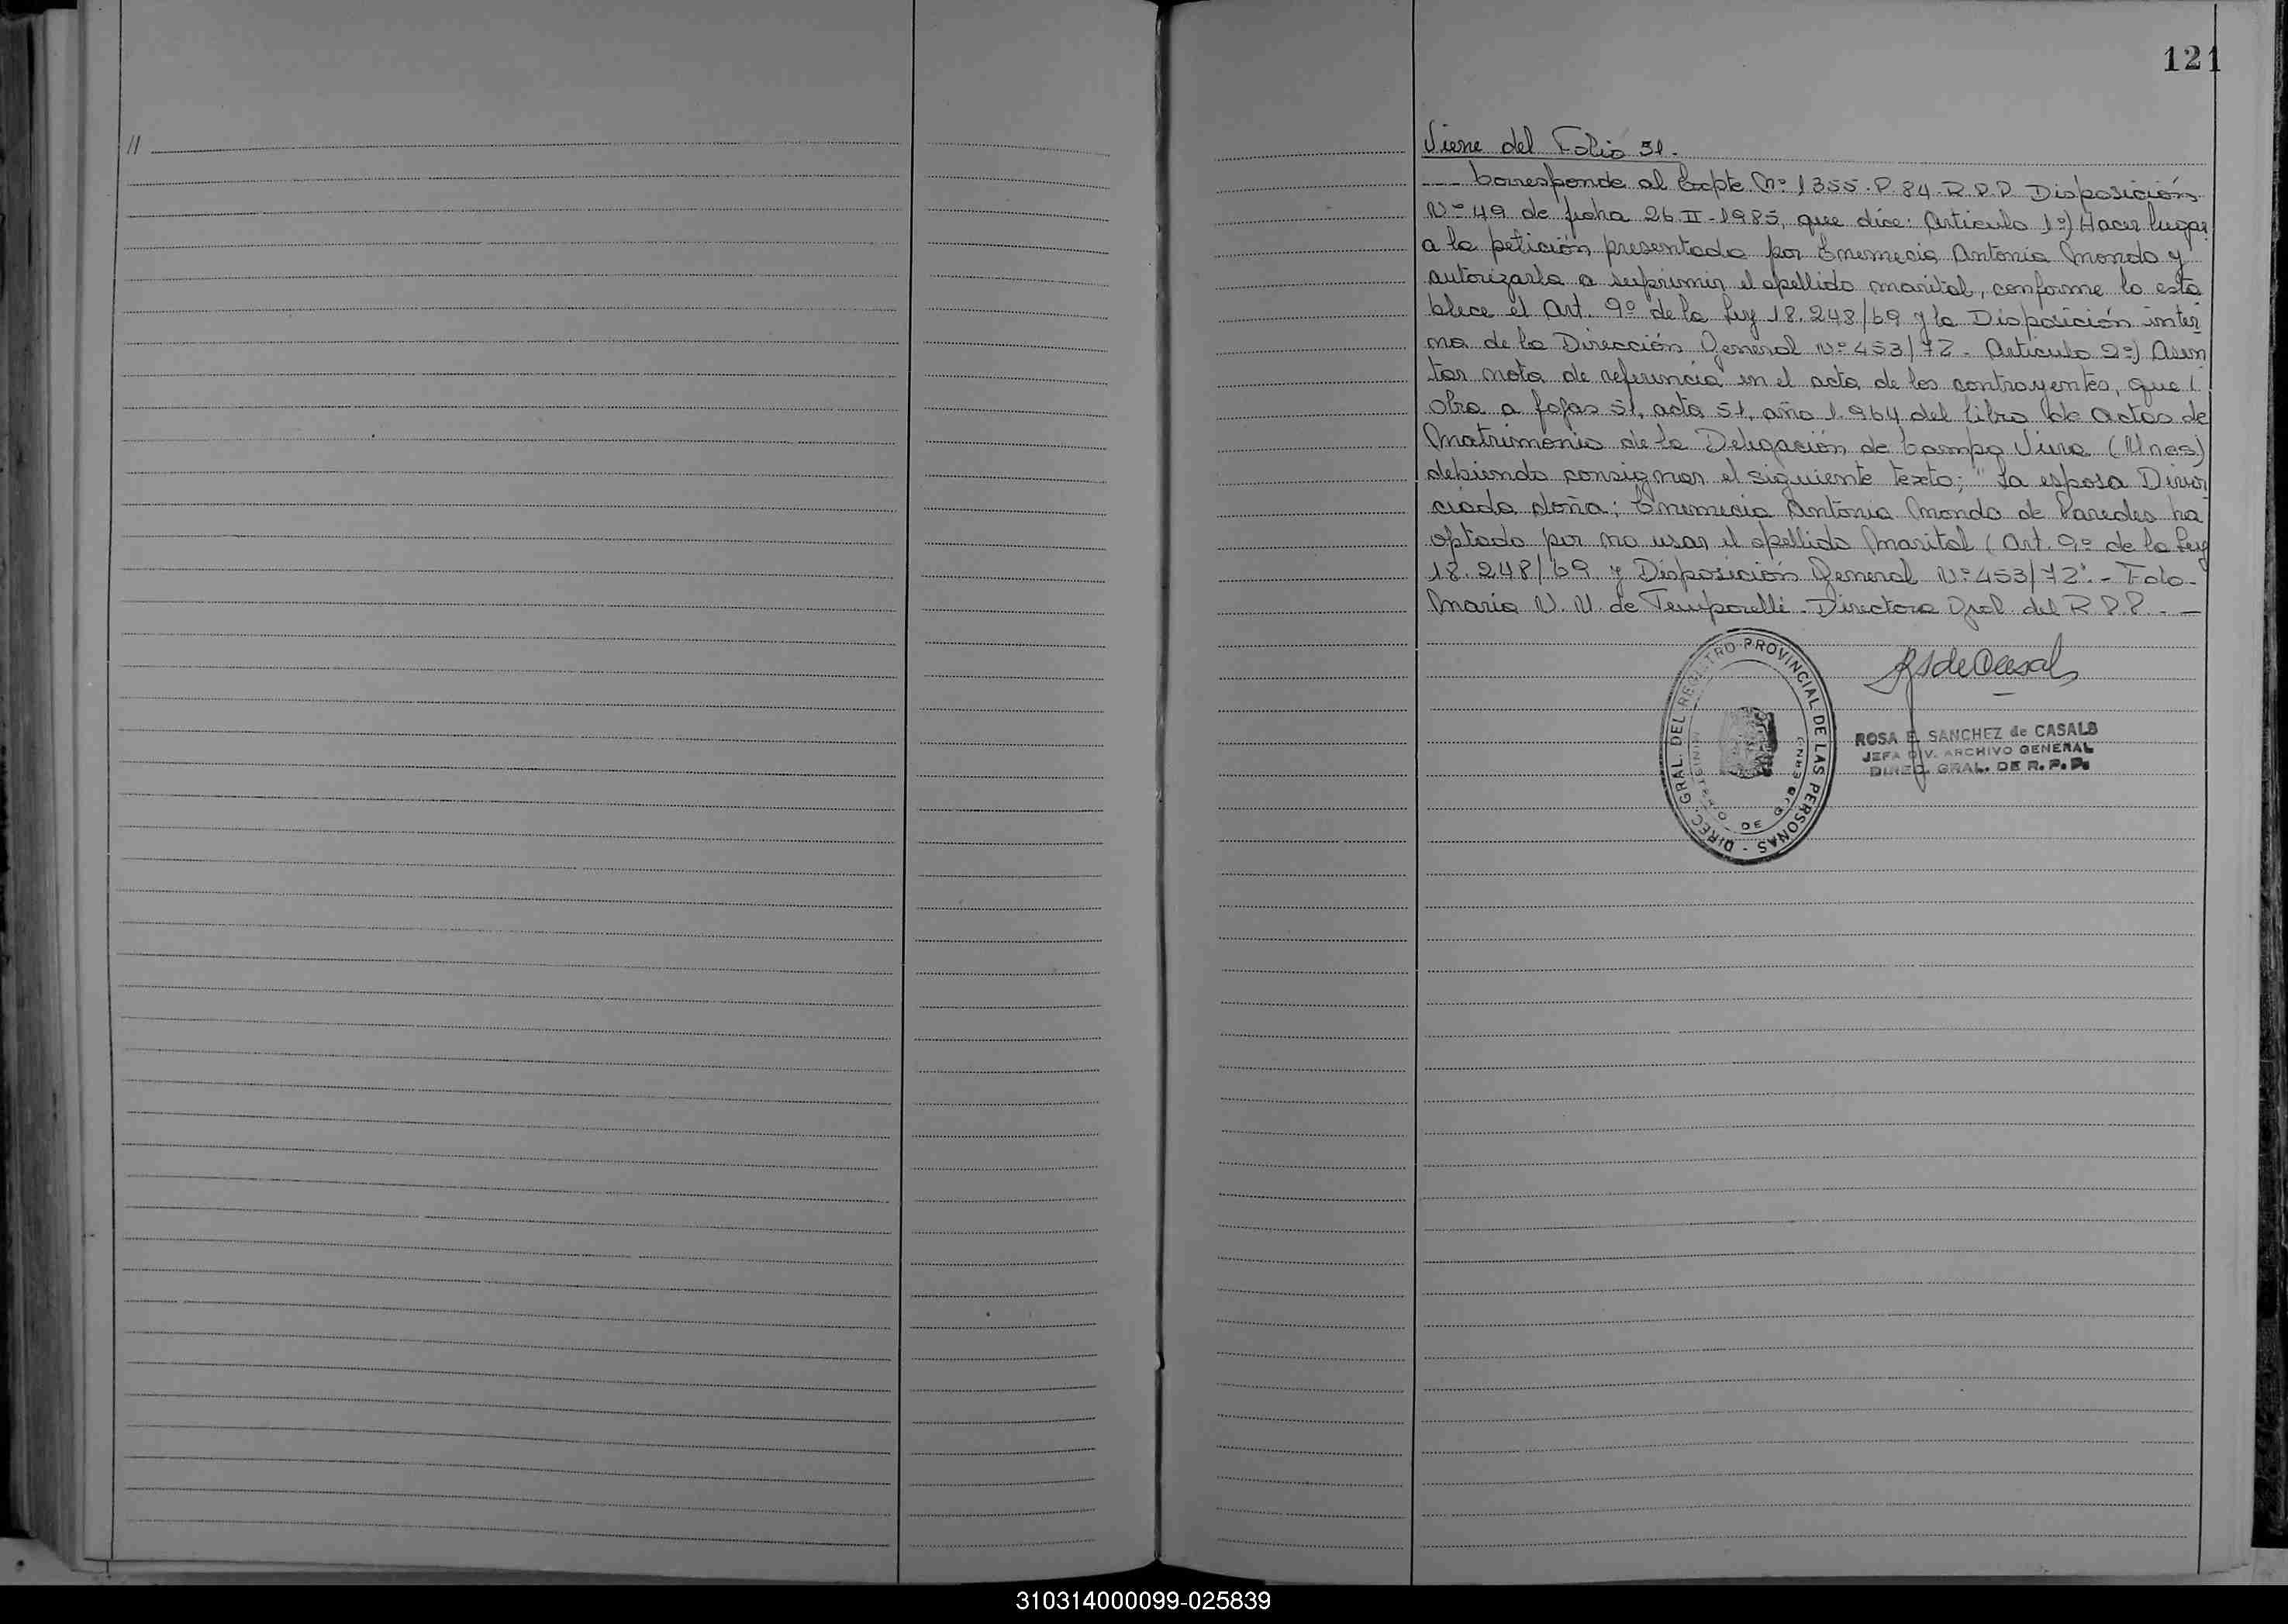 //
121
Viene del Folio 51.-
--- Corresponde al Expte Nº 1355.P.84.R.P.P. Disposición
Nº 49 de fecha 26-II-1985, que dice: Artículo 1º) Hacer lugar
a la petición presentada por Enemecia Antonia Mondo y
autorizarla a suprimir el apellido marital, conforme lo esta
blece el Art. 9º de la Ley 18.248/69 y la Disposición inter
na de la Dirección General Nº 453/72.- Artículo 2º) Asen
tar nota de referencia en el acta de los contrayentes, que
obra a fojas 51, acta 51, año 1.964 del libro de Actas de
Matrimonio de la Delegación de Campo Viera (Mnes)
debiendo consignar el siguiente texto; "La esposa Divor
ciada doña; Enemecia Antonia Mondo de Paredes ha
optado por no usar el apellido Marital (Art. 9º de la Ley
18.248/69 y Disposición General Nº 453/72".- Fdo-
María N. U. de Temporelli - Directora Gral del R.P.P.-
DIREC. GRAL. DEL REGISTRO PROVINCIAL DE LAS PERSONAS -
MINISTERIO DE GOBIERNO
ROSA E. SANCHEZ de CASALS
JEFA DIV. ARCHIVO GENERAL
DIREC. GRAL. DE R.P.P.
310314000099-025839